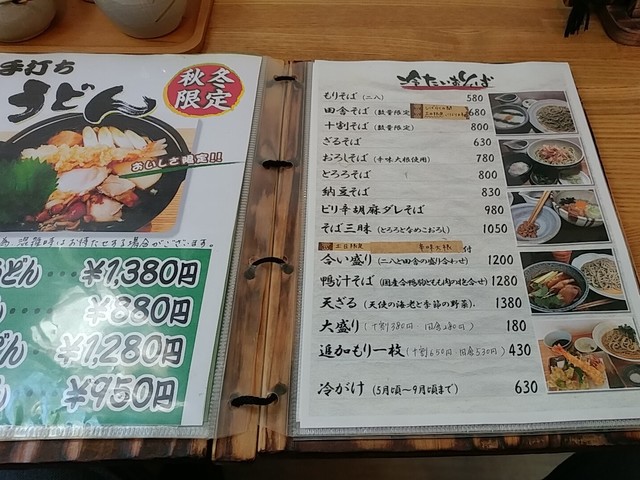 手打ち
うどん
秋冬
限定
おいしさ限定!!
混雑時はお待たせする場合がございます。
うどん ・・・ ¥1,380円
¥880円
どん ・・・ ¥1,280円
¥950円
冷たいおそば
もりそば (二八) 580
田舎そば (数量限定) 680
十割そば (数量限定) 800
ざるそば 630
おろしそば (辛味大根使用) 780
とろろそば 800
納豆そば 830
ピリ辛胡麻ダレそば 980
そば三昧 (とろろとなめこおろし) 1050
土日限定 辛味大根 付
合い盛り (二八と田舎の盛り合わせ) 1200
鴨汁そば (国産合鴨肉ともも肉の抱合せ) 1280
天ざる (天使の海老と季節の野菜) 1380
大盛り (十割380円 田舎280円) 180
追加もり一枚 (十割650円 田舎530円) 430
冷がけ (5月頃〜9月頃まで) 630